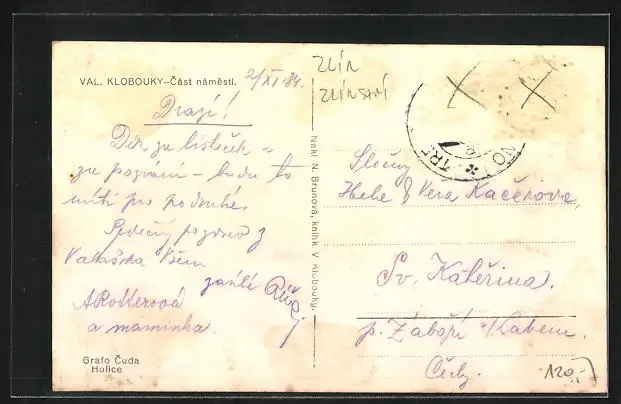 VAL. KLOBOUKY--Část náměstí.
2/XI 34.
Drazí!
Dík za lísteček a
za pozvání – budu to
míti pro po druhé.
Srdečný pozdrav z
Valašska Všem
A Rotterová
a maminka.
Grafo Čuda
Holice
Nakl. N. Brunová, knihk. V. Klobouky.
ZLÍN
Slečny
Hele & Věra Kačerova
Sv. Kateřina.
p. Záboří n/Labem.
Čechy.
120,-